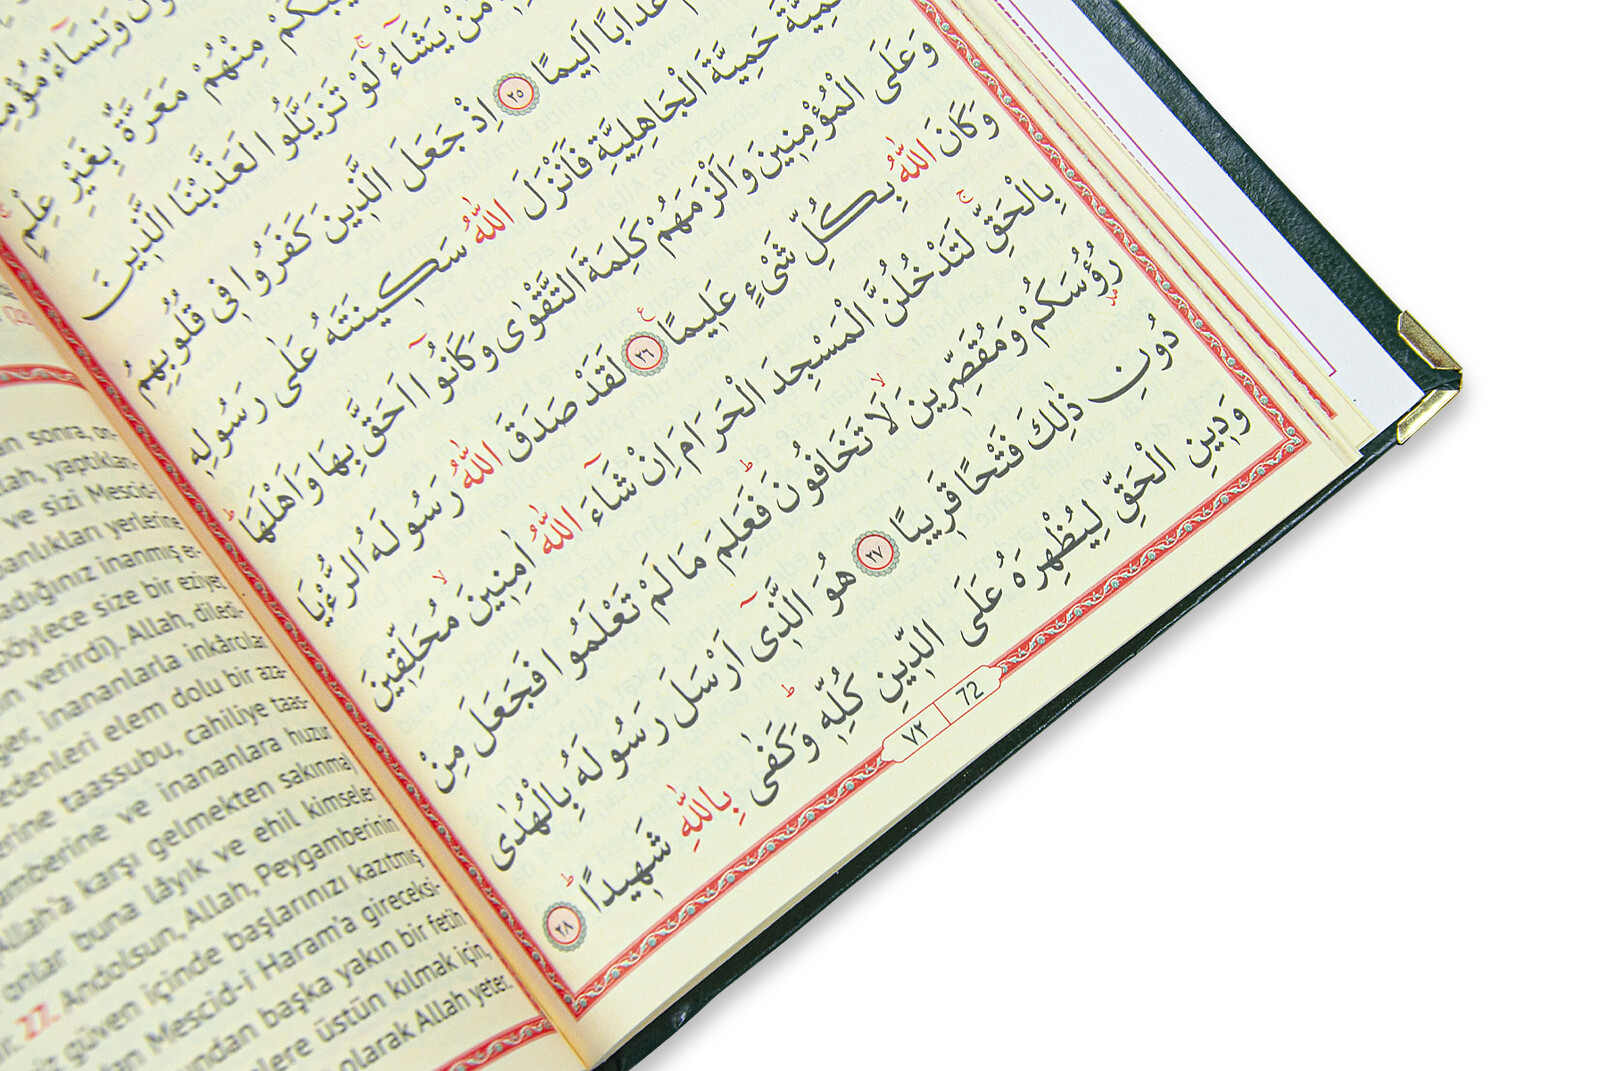 وَنِسَٓاءٌ مُؤْمِنَ
مِنْهُمْ مَعَرَّةٌ بِغَيْرِ عِلْمٍۚ
مَنْ يَشَٓاءُۚ لَوْ تَزَيَّلُوا لَعَذَّبْنَا الَّذ۪ينَ
عَذَابًا اَل۪يمًا ﴿٢٥﴾ اِذْ جَعَلَ الَّذ۪ينَ كَفَرُوا ف۪ي قُلُوبِهِمُ
حَمِيَّةَ الْجَاهِلِيَّةِ فَاَنْزَلَ اللّٰهُ سَك۪ينَتَهُ عَلٰى رَسُولِه۪
وَعَلَى الْمُؤْمِن۪ينَ وَاَلْزَمَهُمْ كَلِمَةَ التَّقْوٰى وَكَانُٓوا اَحَقَّ بِهَا وَاَهْلَهَاۜ
وَكَانَ اللّٰهُ بِكُلِّ شَيْءٍ عَل۪يمًا ﴿٢٦﴾ لَقَدْ صَدَقَ اللّٰهُ رَسُولَهُ الرُّءْيَا
بِالْحَقِّۚ لَتَدْخُلُنَّ الْمَسْجِدَ الْحَرَامَ اِنْ شَٓاءَ اللّٰهُ اٰمِن۪ينَۙ مُحَلِّق۪ينَ
رُؤُ۫سَكُمْ وَمُقَصِّر۪ينَۙ لَا تَخَافُونَۜ فَعَلِمَ مَا لَمْ تَعْلَمُوا فَجَعَلَ مِنْ
دُونِ ذٰلِكَ فَتْحًا قَر۪يبًا ﴿٢٧﴾ هُوَ الَّذ۪ٓي اَرْسَلَ رَسُولَهُ بِالْهُدٰى
وَد۪ينِ الْحَقِّ لِيُظْهِرَهُ عَلَى الدّ۪ينِ كُلِّه۪ۜ وَكَفٰى بِاللّٰهِ شَه۪يدًاۜ ﴿٢٨﴾
٧٢ 72
sonra, on-
llah, yaptıkları-
ve sizi Mescid-i
banlıkları yerlerine
adığınız inanmış er-
böylece size bir eziyet
verirdi). Allah, diledi-
ğer, inananlarla inkârcılar
edenleri elem dolu bir aza-
erine taassubu, cahiliye taas-
amberine ve inananlara huzur
Allah'a karşı gelmekten sakınma)
onlar buna lâyık ve ehil kimseler
27. Andolsun, Allah, Peygamberinin
güven içinde başlarınızı kazıtmış
Mescid-i Haram'a gireceksi-
undan başka yakın bir fetih
lere üstün kılmak için,
olarak Allah yeter.